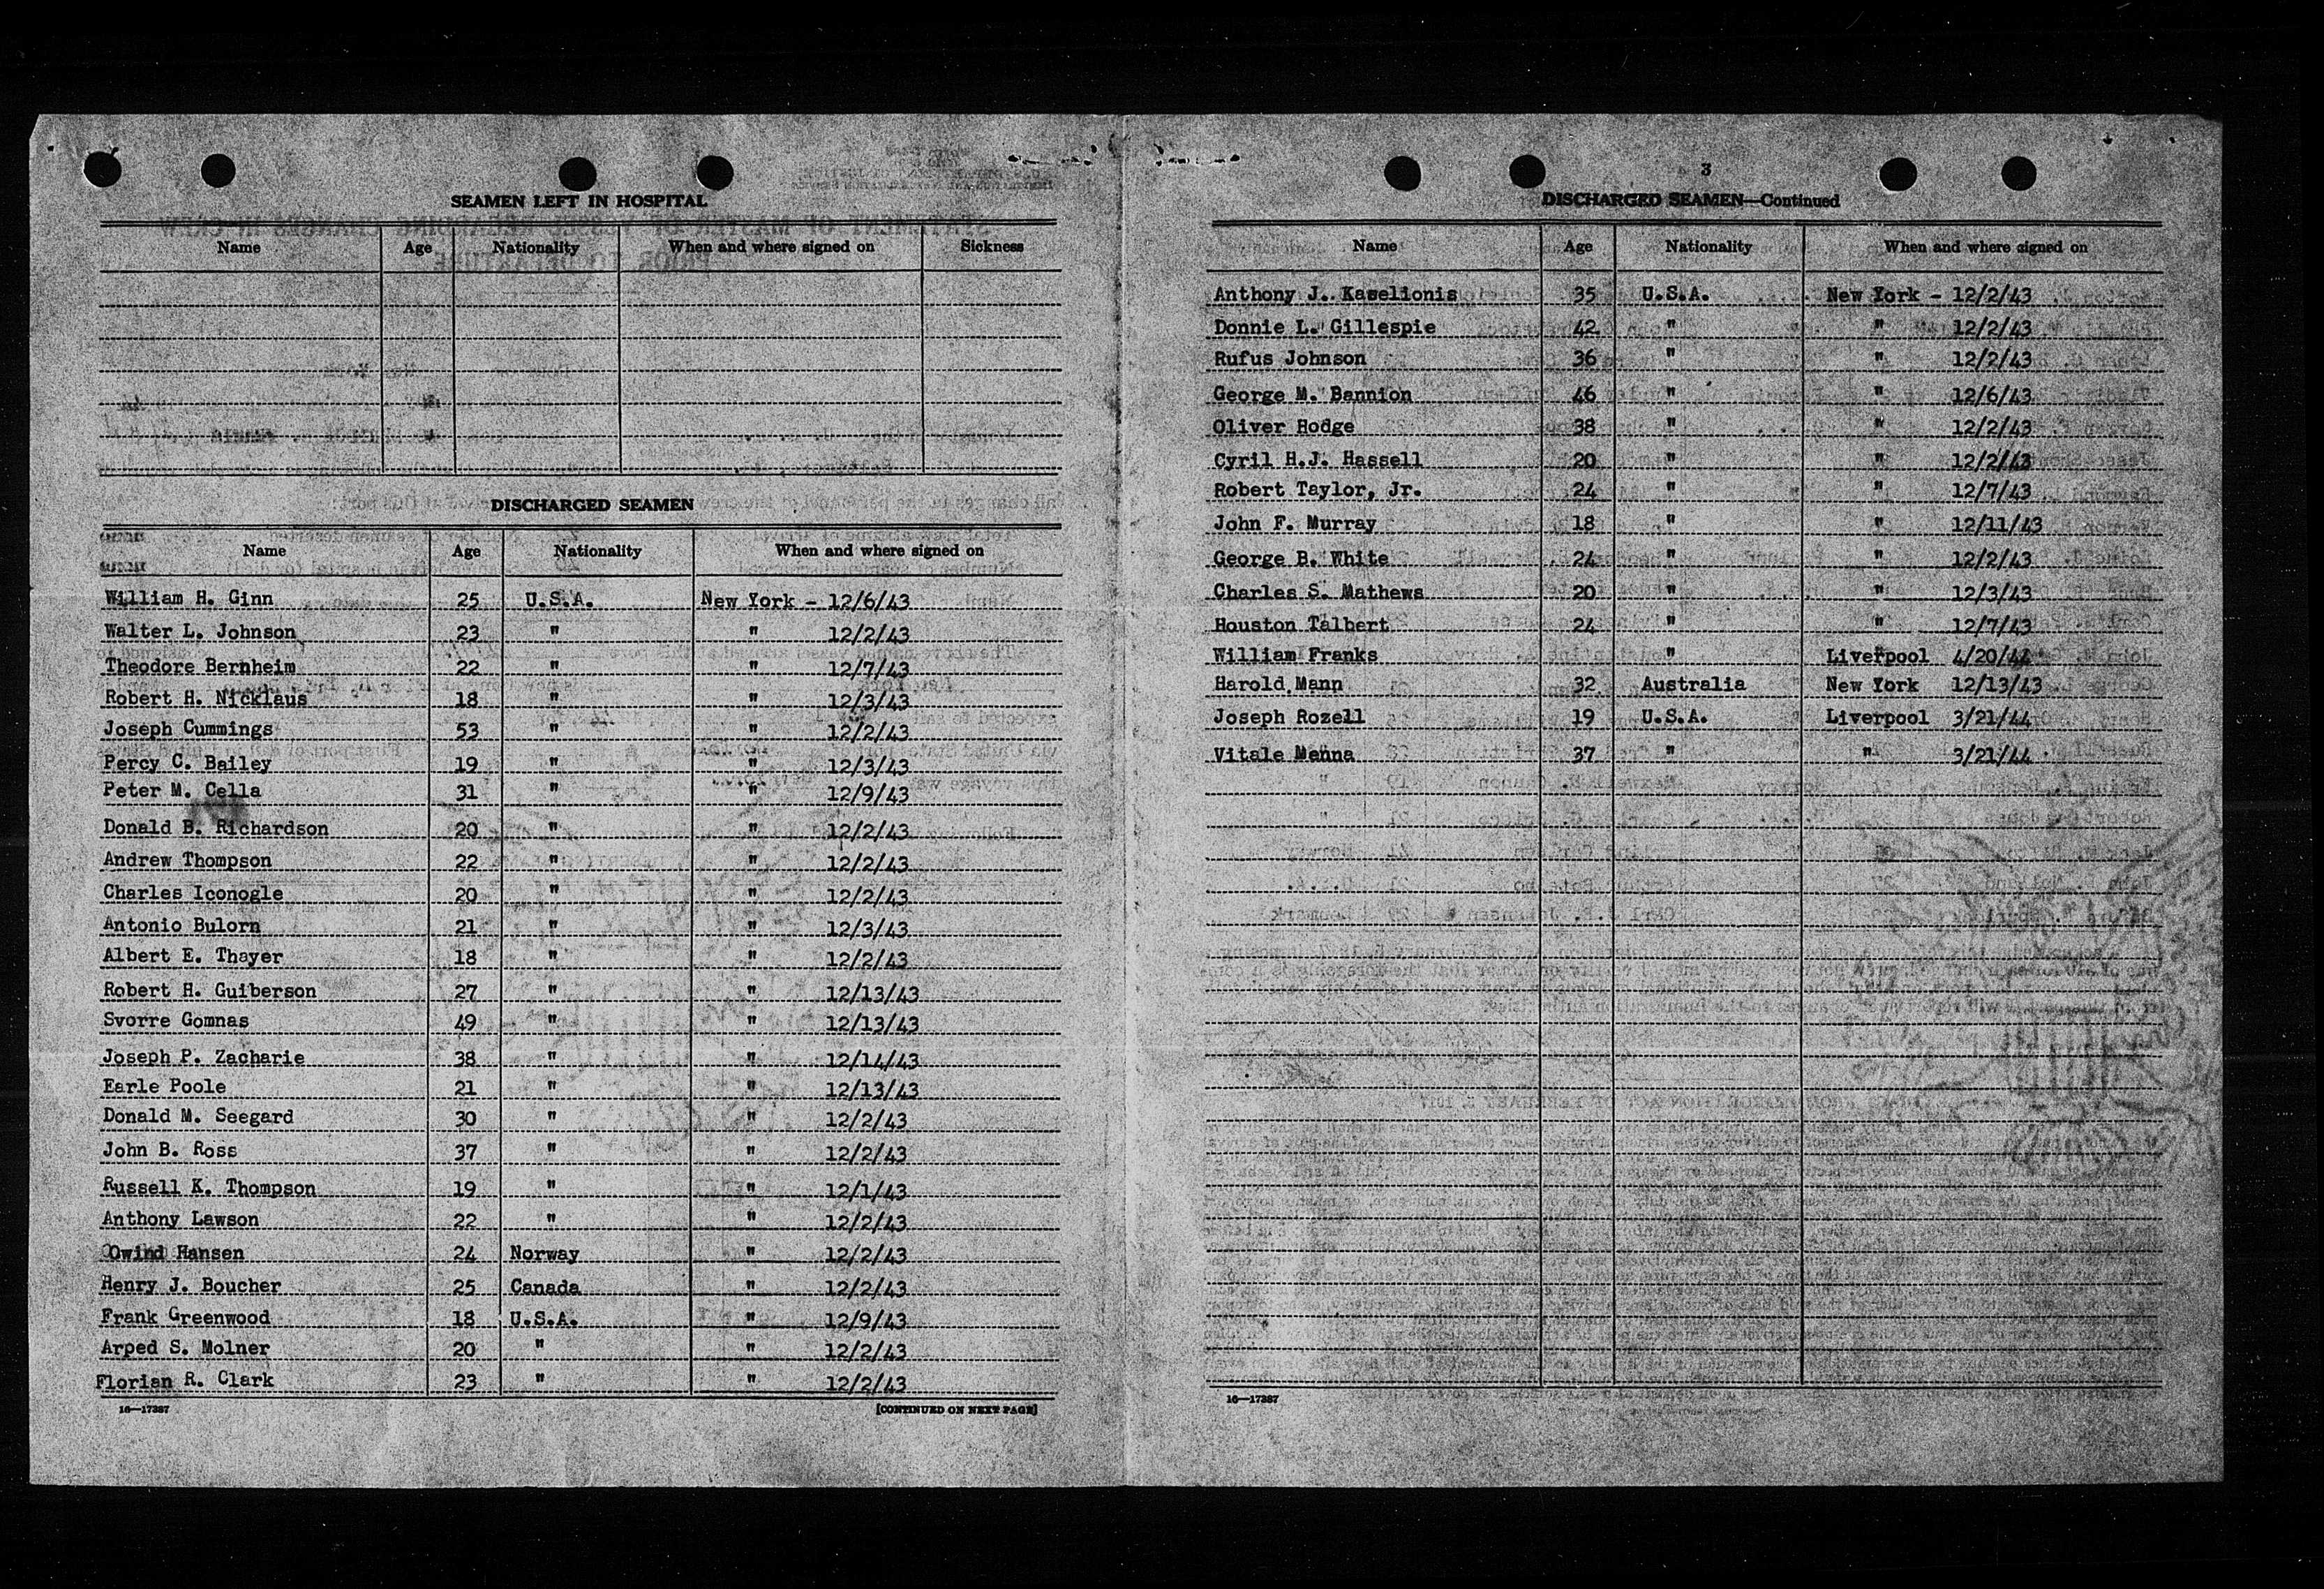 SEAMEN LEFT IN HOSPITAL
Name Age Nationality When and where signed on Sickness
DISCHARGED SEAMEN
Name Age Nationality When and where signed on
William H. Ginn 25 U.S.A. New York - 12/6/43
Walter L. Johnson 23 " " 12/2/43
Theodore Bernheim 22 " " 12/7/43
Robert H. Nicklaus 18 " " 12/3/43
Joseph Cummings 53 " " 12/2/43
Percy C. Bailey 19 " " 12/3/43
Peter M. Cella 31 " " 12/9/43
Donald B. Richardson 20 " " 12/2/43
Andrew Thompson 22 " " 12/2/43
Charles Iconogle 20 " " 12/2/43
Antonio Bulorn 21 " " 12/3/43
Albert E. Thayer 18 " " 12/2/43
Robert H. Guiberson 27 " " 12/13/43
Svorre Gomnas 49 " " 12/13/43
Joseph P. Zacharie 38 " " 12/14/43
Earle Poole 21 " " 12/13/43
Donald M. Seegard 30 " " 12/2/43
John B. Ross 37 " " 12/2/43
Russell K. Thompson 19 " " 12/1/43
Anthony Lawson 22 " " 12/2/43
Owind Hansen 24 Norway " 12/2/43
Henry J. Boucher 25 Canada " 12/2/43
Frank Greenwood 18 U.S.A. " 12/9/43
Arped S. Molner 20 " " 12/2/43
Florian R. Clark 23 " " 12/2/43
16—17387 [CONTINUED ON NEXT PAGE]
3
DISCHARGED SEAMEN—Continued
Name Age Nationality When and where signed on
Anthony J. Kaselionis 35 U.S.A. New York - 12/2/43
Donnie L. Gillespie 42 " " 12/2/43
Rufus Johnson 36 " " 12/2/43
George M. Bannion 46 " " 12/6/43
Oliver Hodge 38 " " 12/2/43
Cyril H.J. Hassell 20 " " 12/2/43
Robert Taylor, Jr. 24 " " 12/7/43
John F. Murray 18 " " 12/11/43
George B. White 24 " " 12/2/43
Charles S. Mathews 20 " " 12/3/43
Houston Talbert 24 " " 12/7/43
William Franks " Liverpool 4/20/44
Harold Mann 32 Australia New York 12/13/43
Joseph Rozell 19 U.S.A. Liverpool 3/21/44
Vitale Menna 37 " " 3/21/44
16—17387